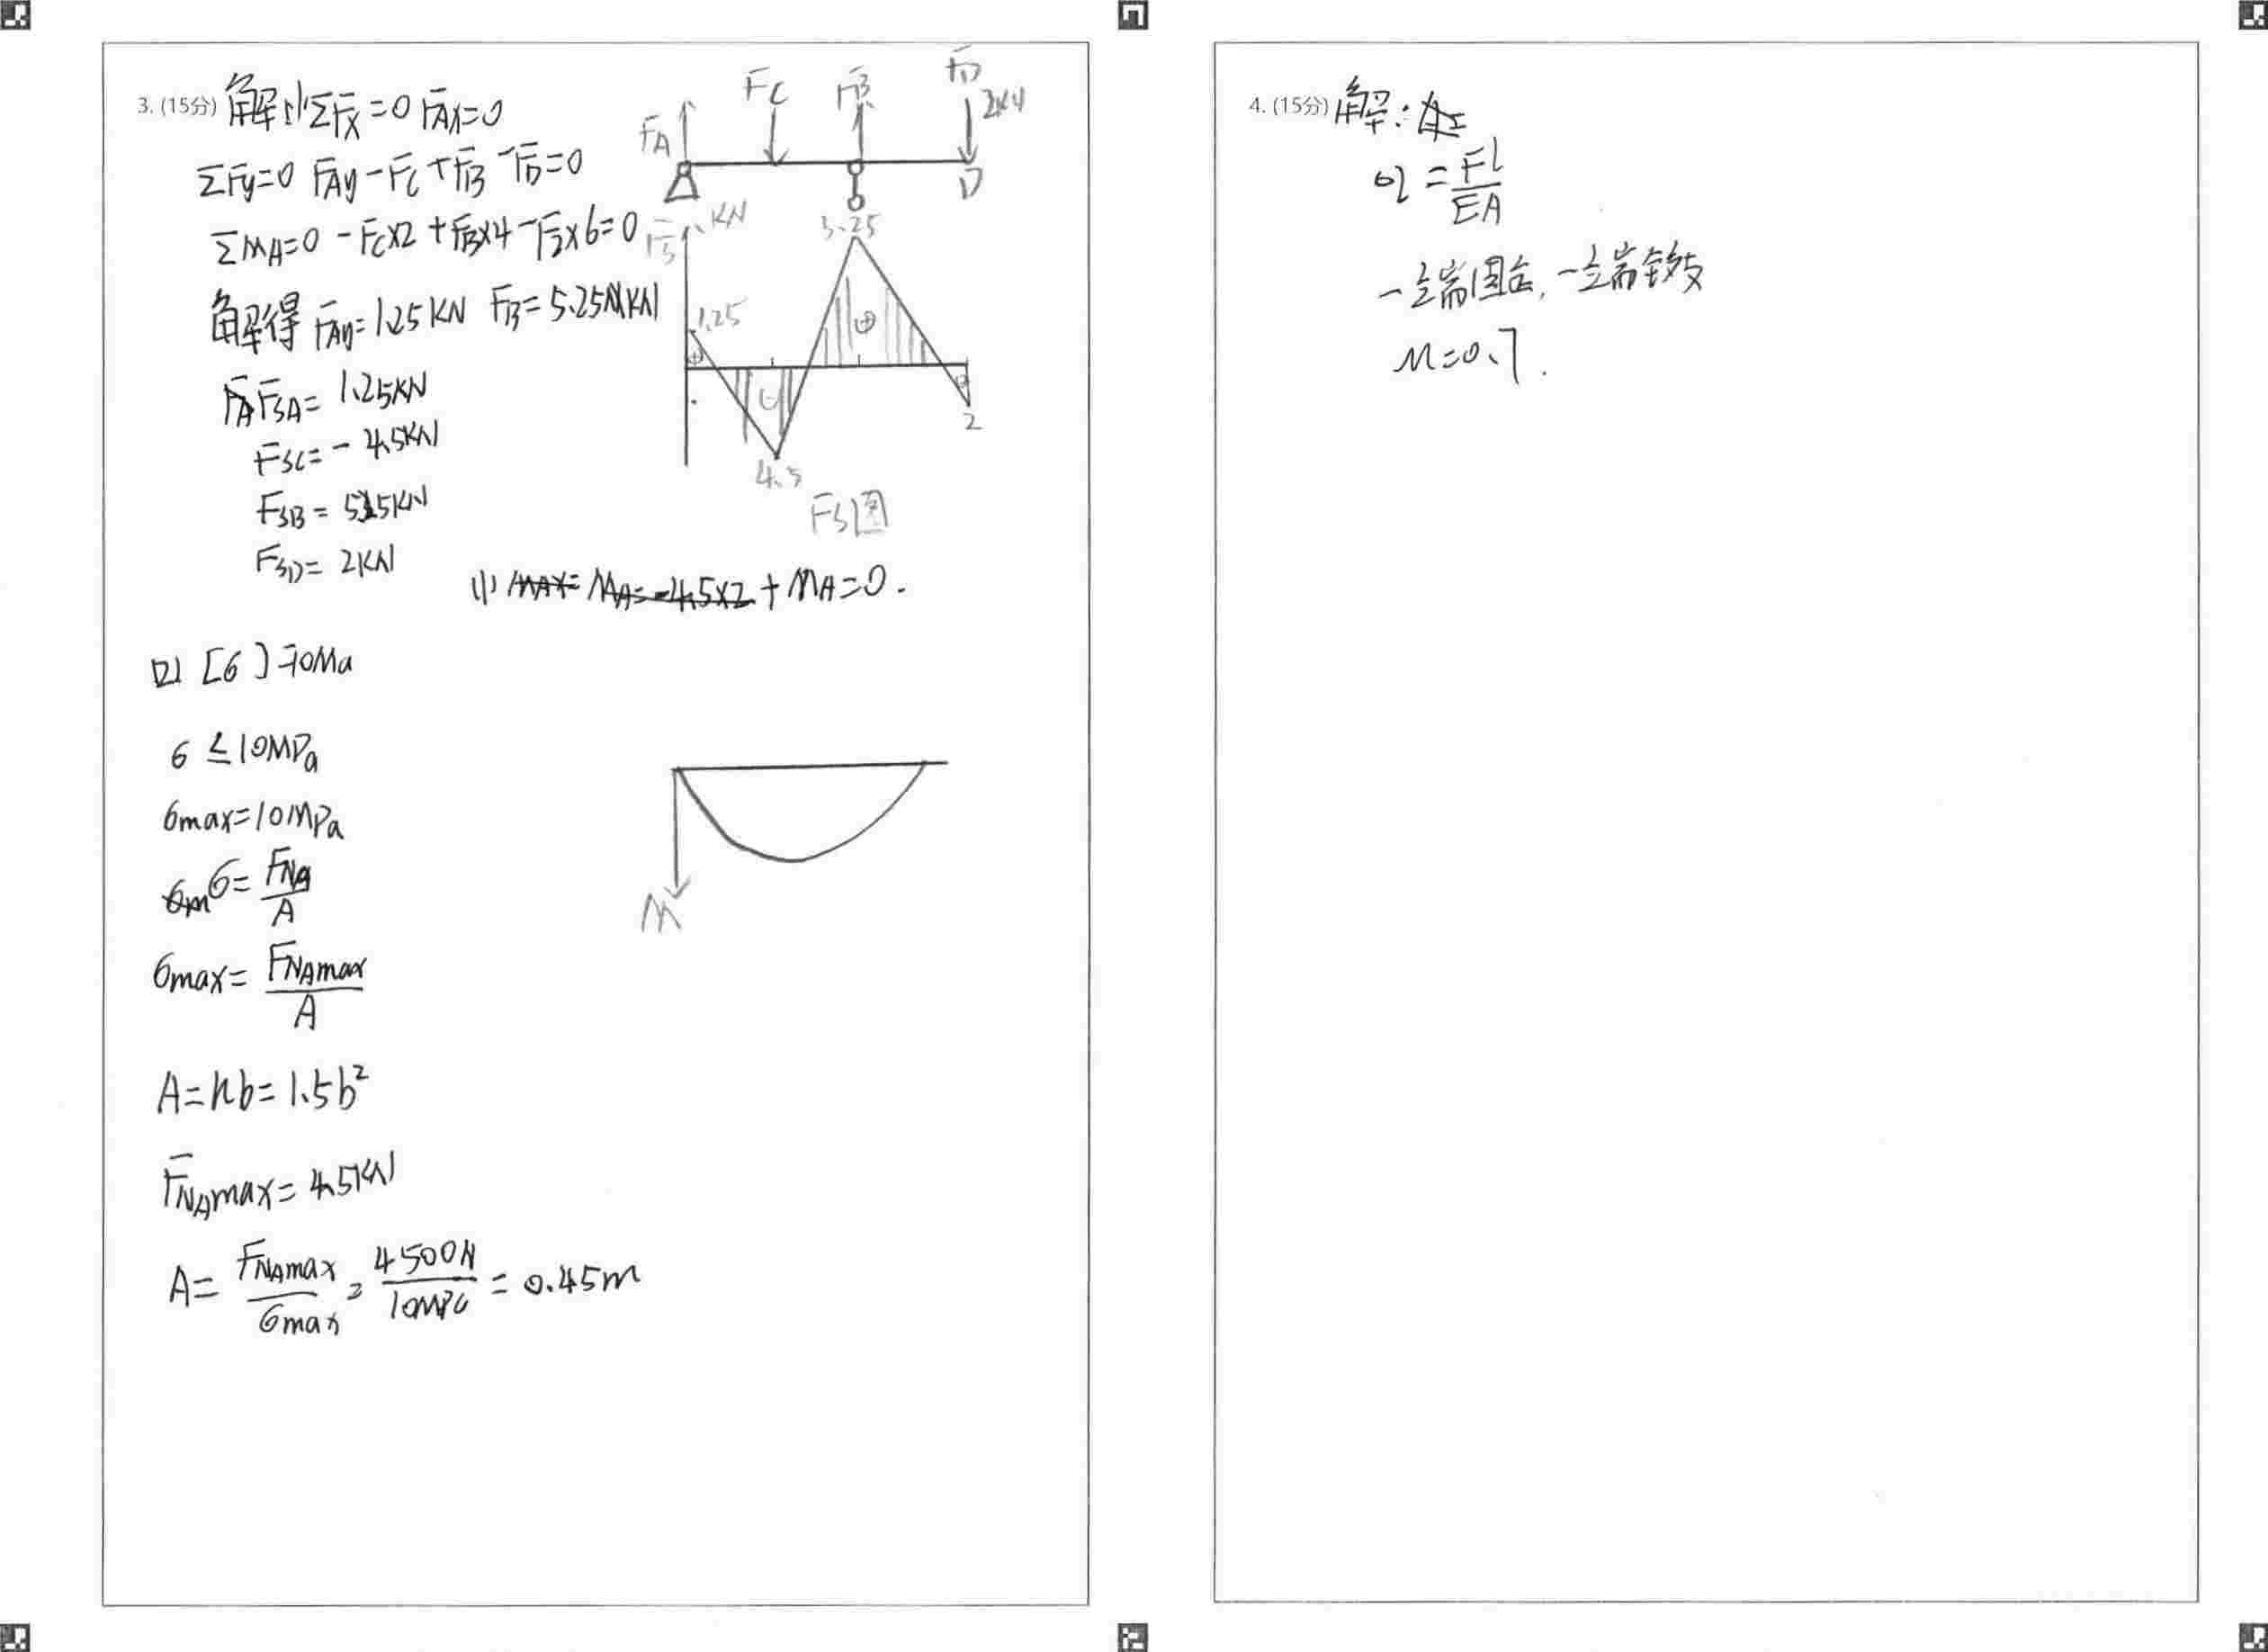 3. (15分) 解 (1) ΣFx=0 FAx=0
ΣFy=0 FAy-Fc+FB-FD=0
ΣMA=0 -Fc×2+FB×4-F2×6=0
解得 FAy=1.25KN FB=5.25KN
FSA=1.25KN
FSC=-4.5KN
FSB=5.25KN
FSD=2KN
FA
FC
FB
FD
2KN
D
FS
KN
1.25
3.25
⊕
⊖
⊕
4.5
2
FS图
(1) MAX= MA=-4.5×2+MA=0.
(2) [6]=10Ma
6≤10MPa
6max=10MPa
6=FNA/A
6max=FNAmax/A
A=hb=1.5b²
FNAmax=4.5KN
A=FNAmax/6max=4500N/10MPa=0.45m
M
4. (15分) 解:
σl=Fl/EA
一端固台,一端铰支
M=0.7.